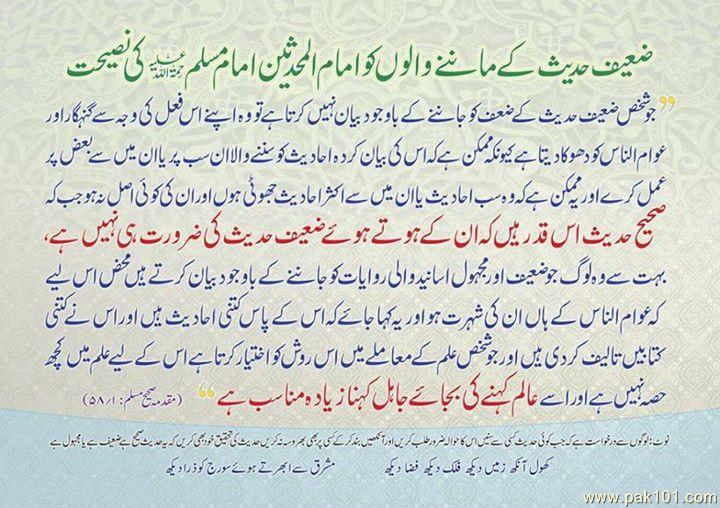 ضعیف حدیث کے ماننے والوں کو امام المحدثین امام مسلم رحمۃ اللہ علیہ کی نصیحت
”جو شخص ضعیف حدیث کے ضعف کو جاننے کے باوجود بیان نہیں کرتا ہے تو وہ اپنے اس فعل کی وجہ سے گنہگار اور
عوام الناس کو دھوکا دیتا ہے کیونکہ ممکن ہے کہ اس کی بیان کردہ احادیث کو سننے والا ان سب پر یا ان میں سے بعض پر
عمل کرے اور یہ ممکن ہے کہ وہ سب احادیث یا ان میں سے اکثر احادیث جھوٹی ہوں اور ان کی کوئی اصل نہ ہو جب کہ
صحیح حدیث اس قدر ہیں کہ ان کے ہوتے ہوئے ضعیف حدیث کی ضرورت ہی نہیں ہے،
بہت سے وہ لوگ جو ضعیف اور مجہول اسانید والی روایات کو جاننے کے باوجود بیان کرتے ہیں محض اس لیے
کہ عوام الناس کے ہاں ان کی شہرت ہو اور یہ کہا جائے کہ اس کے پاس کتنی احادیث ہیں اور اس نے کتنی
کتابیں تالیف کر دی ہیں اور جو شخص علم کے معاملے میں اس روش کو اختیار کرتا ہے اس کے لیے علم میں کچھ
حصہ نہیں ہے اور اسے عالم کہنے کی بجائے جاہل کہنا زیادہ مناسب ہے“ (مقدمہ صحیح مسلم: ۵۸/۱)
نوٹ: لوگوں سے درخواست ہے کہ جب کوئی حدیث کسی سے سنیں اس کا حوالہ ضرور طلب کریں اور آنکھیں بند کر کے کسی پر بھی بھروسہ نہ کریں حدیث کی تحقیق خود بھی کریں کہ یہ حدیث صحیح ہے ضعیف ہے یا مجہول ہے
کھول آنکھ زمیں دیکھ فلک دیکھ فضا دیکھ مشرق سے ابھرتے ہوئے سورج کو ذرا دیکھ
www.pak101.com